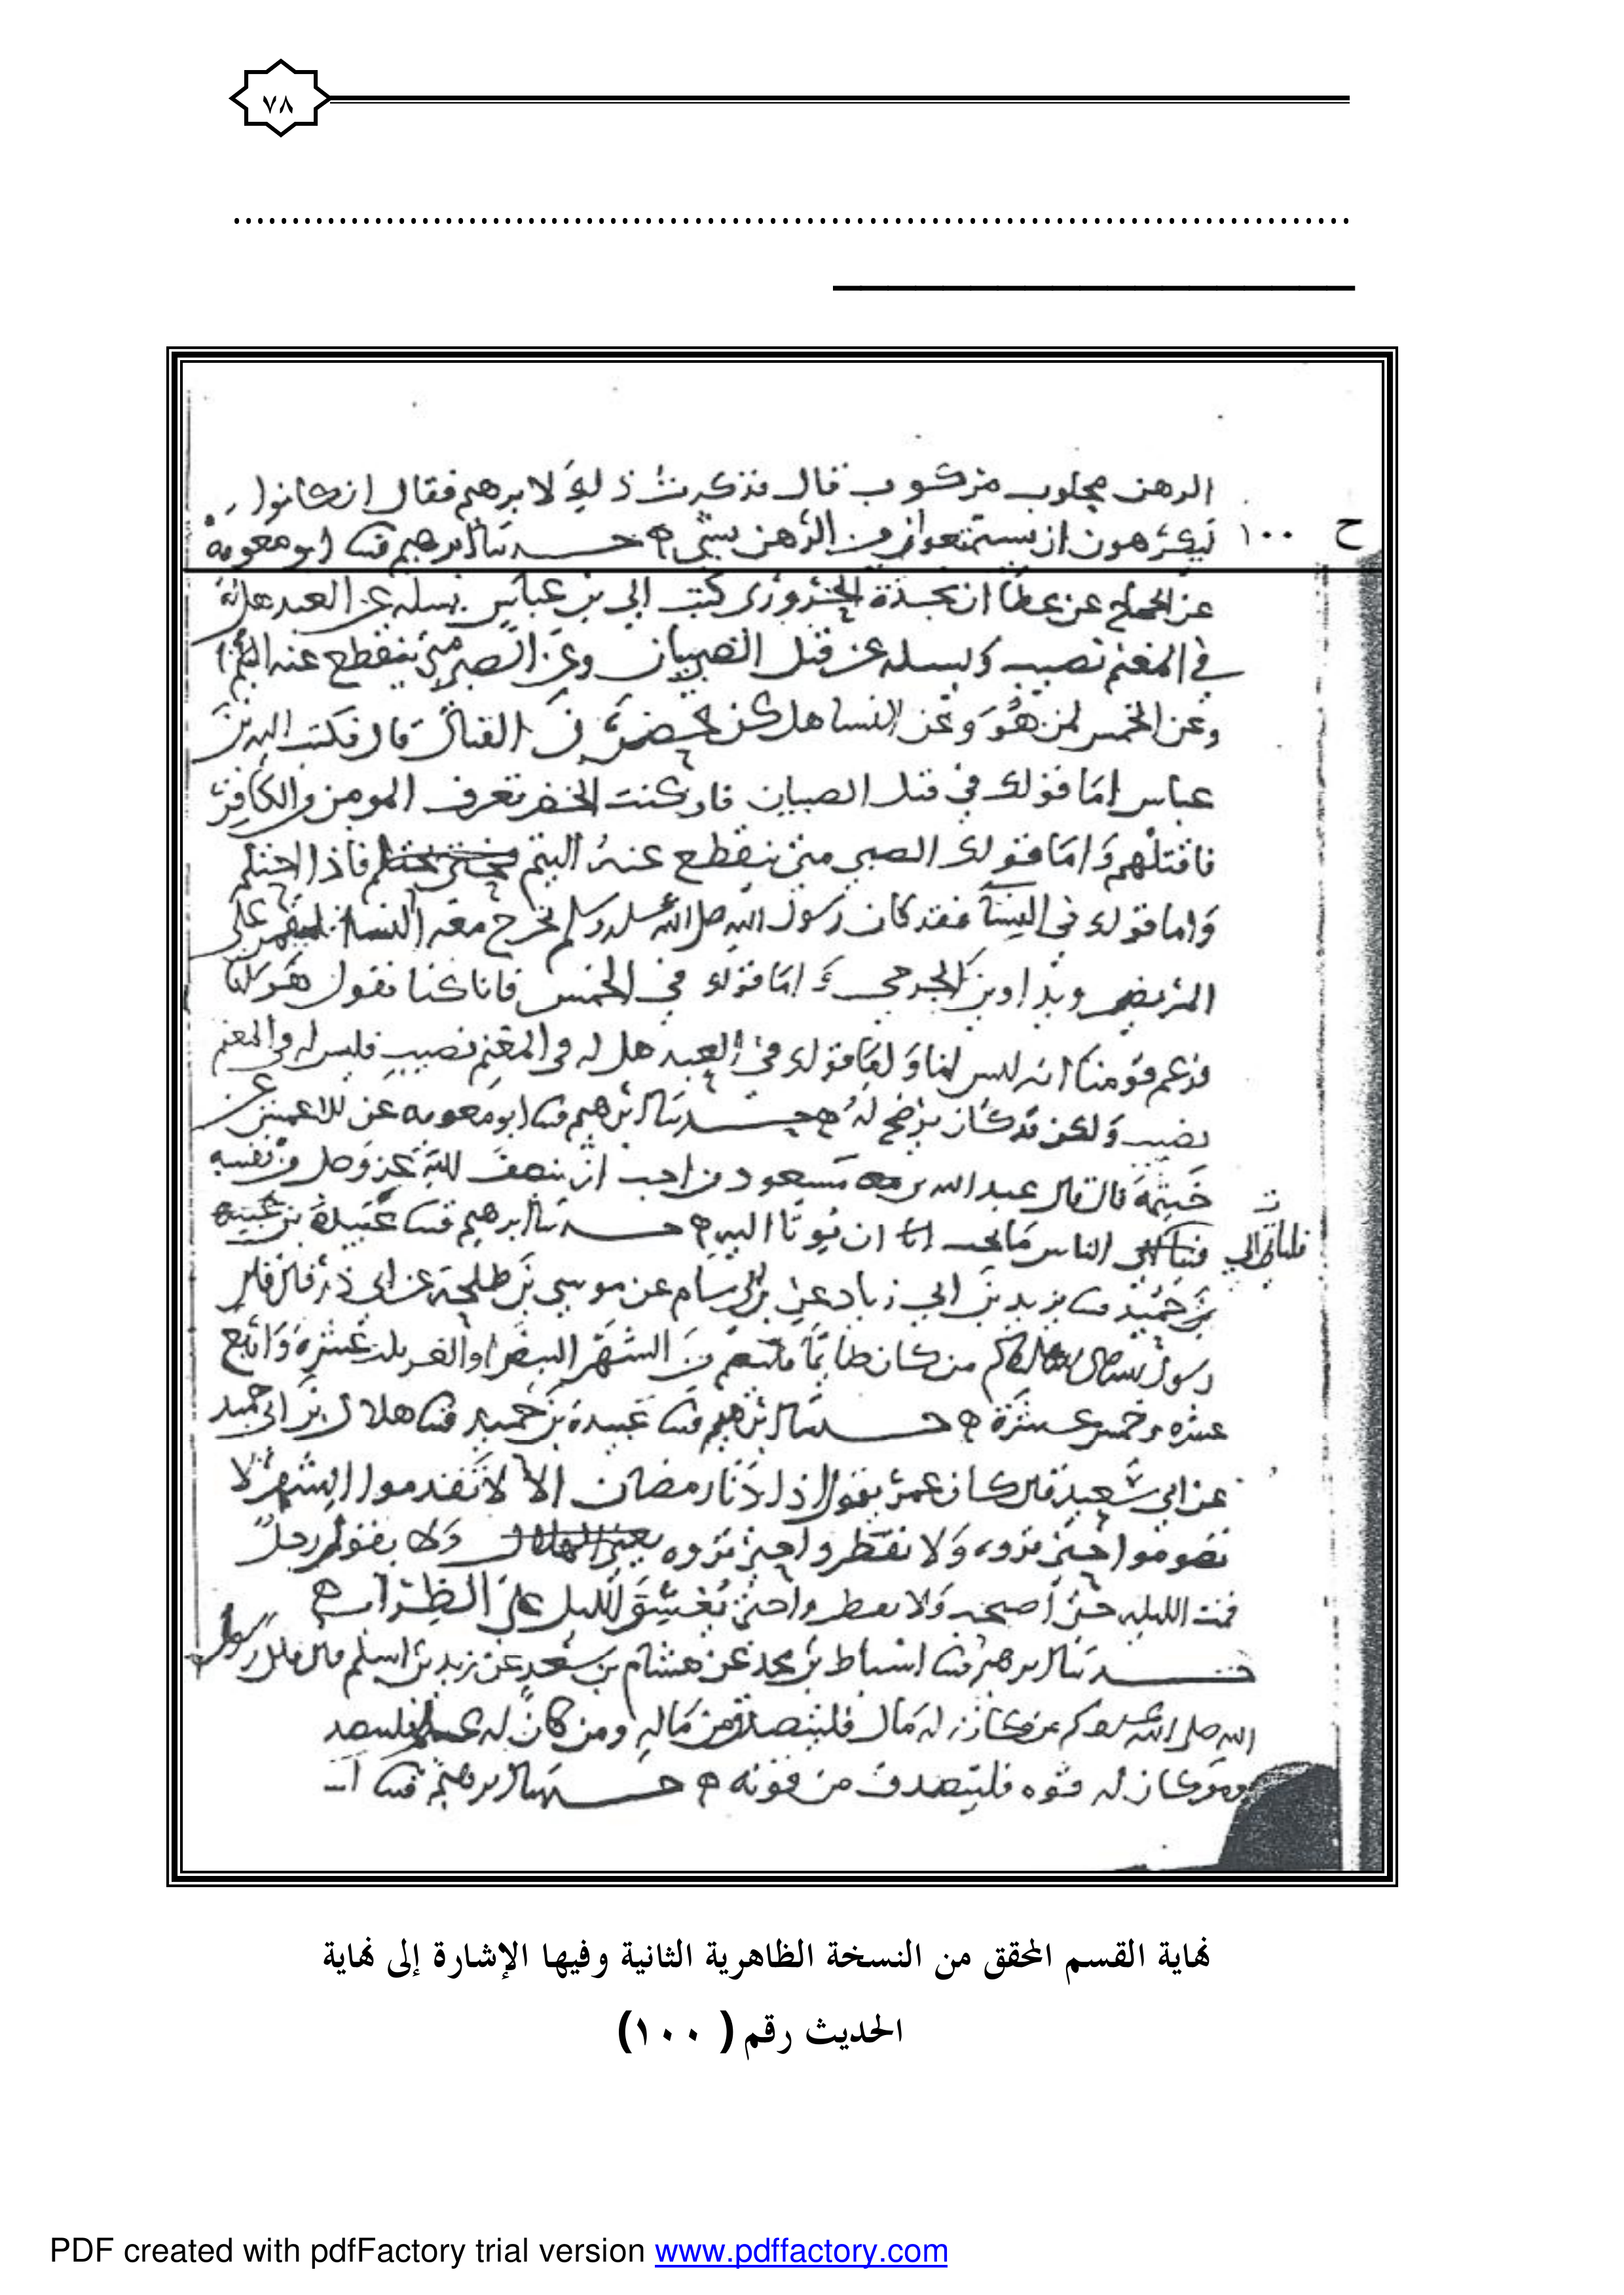 ٧٨
الرهن محلوب مركوب قال فذكرت ذلك لابرهيم فقال ان كانوا
ح ١٠٠ ليكرهون ان يستمتعوا من الرهن بشي حدثنا ابرهيم ابو معويه
عن الحجاج عن عطا ان نجدة الحروري كتب الى بن عباس يسله عن العبد هل له
في المغنم نصيب ويسله عن قتل الصبيان وعن الصبي متى ينقطع عنه اليتم
وعن الخمس لمن هو وعن النسا هل كن يحضرن القتال قال فكتب اليه بن
عباس اما قولك في قتل الصبيان فان كنت الخضر تعرف المومن والكافر
فاقتلهم واما قولك الصبي متى ينقطع عنه اليتم فاذا احتلم
واما قولك في النسا فقد كان رسول الله صلى الله عليه وسلم يخرج معه النسا على
المريض ويداوين الجرحى و اما قولك في الخمس فانا كنا نقول هو لنا
فزعم قومنا انه ليس لنا و اما قولك في العبد هل له في المغنم نصيب فليس له في المغنم
نصيب ولكن قد كان يرضخ له حدثنا ابرهيم ابو معويه عن الاعمش عن
خيثمة قال قال عبد الله بن مسعود من احب ان ينصف لله عز وجل من نفسه
فليات الى الناس ما يحب ان يوتا اليه حدثنا ابرهيم عبيدة
بن حميد يزيد بن ابي زياد عن موسى بن طلحة عن ابي ذر قال قال
رسول الله صلى الله عليه وسلم من كان صايما من الشهر البيض او الغر ثلث عشرة واربع
عشره وخمس عشرة حدثنا ابرهيم عبيدة بن حميد هلال بن ابي حميد
عن ابي سعيد قال كان عمر يقول اذا دنا رمضان الا لا تقدموا الشهر لا
تصوموا حتى تروه ولا تفطروا حتى تروه ولا يقول رجل
نمت الليله حتى اصبحت ولا تفطروا حتى يغسق الليل على الظراب
حدثنا ابرهيم اسباط بن محمد عن هشام بن سعد عن زيد بن اسلم قال قال رسول
الله صلى الله عليه وسلم من كان له مال فليتصدق من ماله ومن كان له
ومن كان له قوه فليتصدق من قوته حدثنا ابرهيم
نهاية القسم المحقق من النسخة الظاهرية الثانية وفيها الإشارة إلى نهاية
الحديث رقم ( ١٠٠)
PDF created with pdfFactory trial version www.pdffactory.com